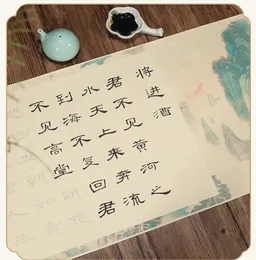 将进酒
君不见黄河之
水天上来奔流
到海不复回君
不见高堂